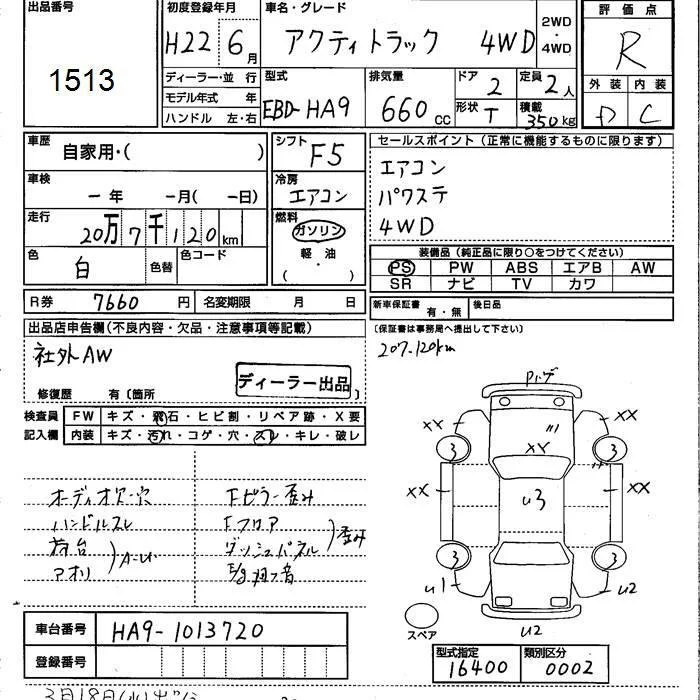 出品番号
1513
初度登録年月
H22 6月
車名・グレード
アクティトラック 4WD
2WD・4WD
評価点
R
外装 内装
D C
ディーラー・並行
モデル年式 年
ハンドル 左・右
型式
EBD-HA9
排気量
660 cc
ドア 2
形状 T
定員 2人
積載 350kg
車歴
自家用・( )
シフト
F5
車検
一年 一月( 一日)
冷房
エアコン
走行
20万7千120km
燃料
ガソリン
軽油
( ・ )
色
白
色替
色コード
R券 7660円
名変期限 月 日
セールスポイント(正常に機能するものに限ります)
エアコン
パワステ
4WD
装備品(純正品に限り○をつけてください)
PS PW ABS エアB AW
SR ナビ TV カワ
新車保証書 有・無
後日品
(保証書は事務局へ提出して下さい)
207.120km
出品店申告欄(不良内容・欠品・注意事項等記載)
社外AW
修復歴 有〔箇所
ディーラー出品
検査員記入欄
FW キズ・飛石・ヒビ割・リペア跡・X要
内装 キズ・汚れ・コゲ・穴・スレ・キレ・破レ
オーディオ欠・穴
ハンドルスレ
荷台
アオリ
A-U
Fピラー歪み
Fフロア
ダッシュパネル
歪み
E/g 異音
XX
XX
XX
3
3
XX
U3
XX
3
3
U1
U2
U2
スペア
車台番号 HA9-1013720
登録番号
型式指定
16400
類別区分
0002